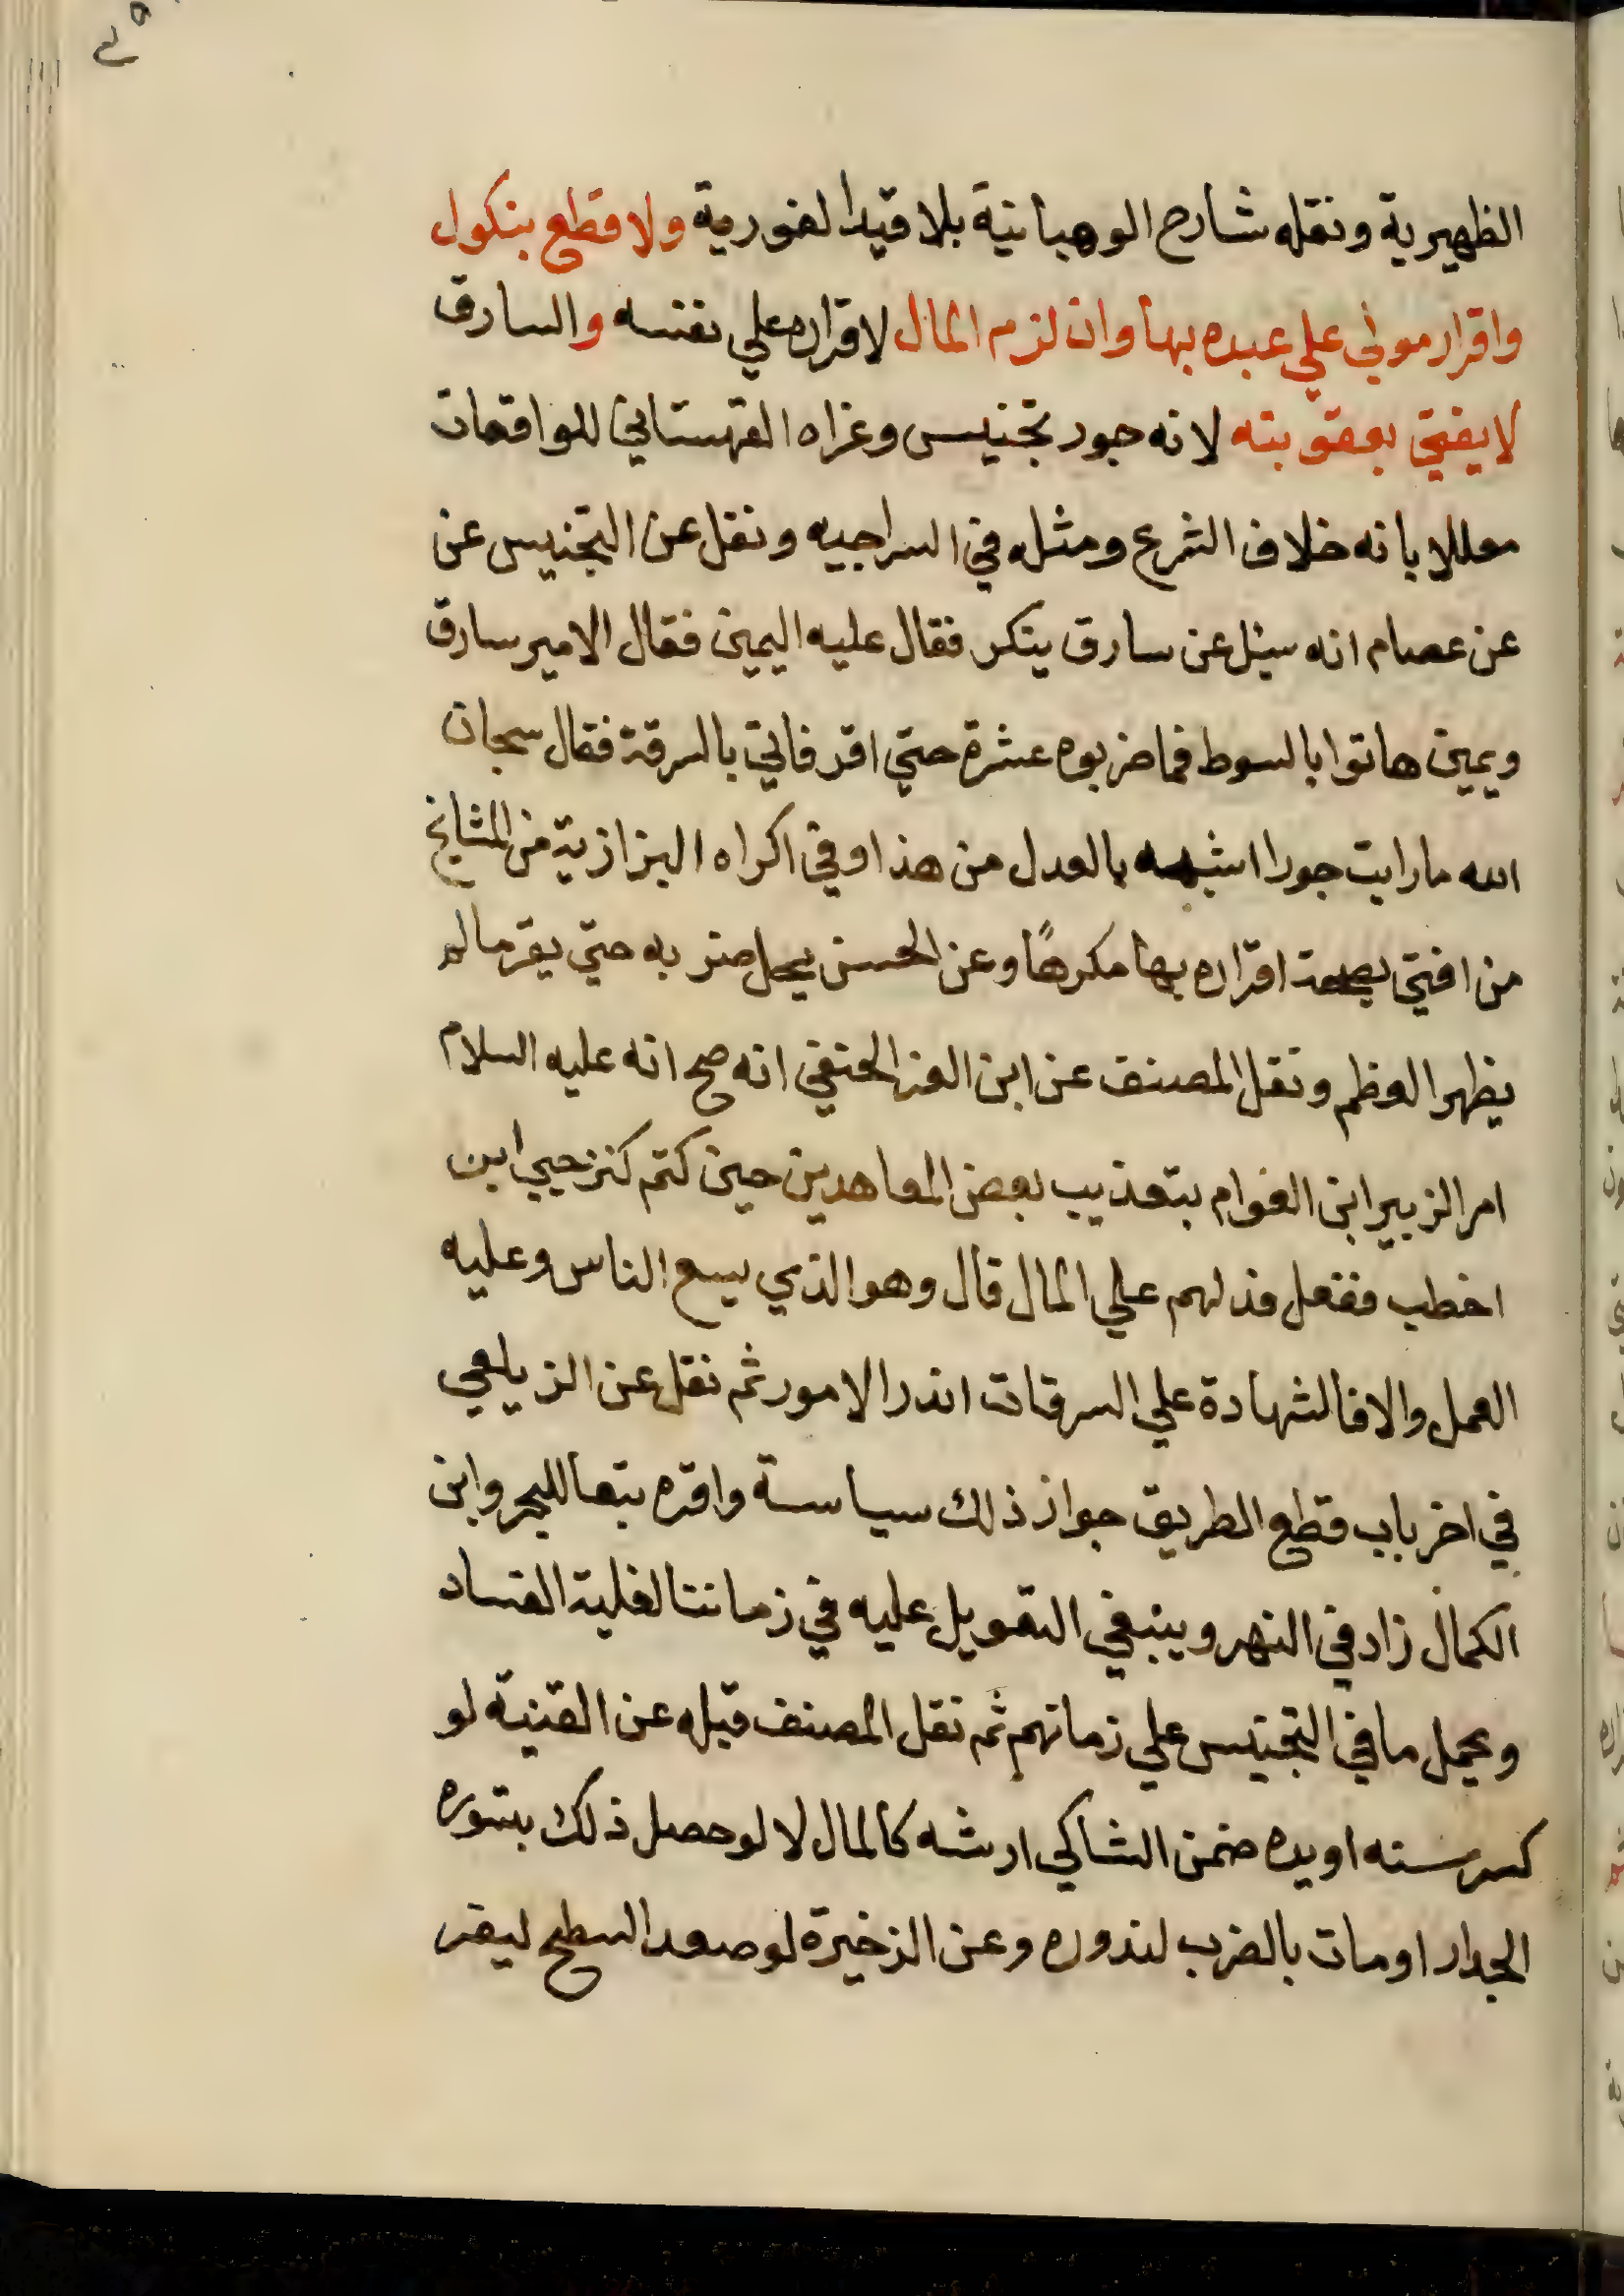 الظهيرية ونقله شارح الوهبانية بلا قيد الفورية ولا قطع بنكول
واقرار مولي علي عبده بها وان لزم المال لاقراره علي نفسه والسارق
لا يفتي بعقوبته لانه جور تجنيس وعزاه القهستاني للواقعات
معللا بانه خلاف الشرع ومثله في السراجيه ونقل عن التجنيس عن
عن عصام انه سئل عن سارق ينكر فقال عليه اليمين فقال الامير سارق
ويمين هاتوا بالسوط فما ضربوه عشرة حتي اقر فاتي بالسرقة فقال سبحان
الله ما رايت جورا اشبه بالعدل من هذا وفي اكراه البزازية من المشايخ
من افتي بصحة اقراره بها مكرهًا وعن الحسن يحل ضربه حتي يقر ما لم
يظهر العظم ونقل المصنف عن ابن العز الحنفي انه صح انه عليه السلام
امر الزبير ابن العوام بتعذيب بعض المعاهدين حين كتم كنز حيي ابن
اخطب ففعل فدلهم علي المال قال وهو الذي يسع الناس وعليه
العمل والا فالشهادة علي السرقات اندر الامور ثم نقل عن الزيلعي
في اخر باب قطع الطريق جواز ذلك سياسة واقره تبعا للبحر وابن
الكمال زاد في النهر وينبغي التعويل عليه في زماننا لغلبة الفساد
ويحمل ما في التجنيس علي زمانهم ثم نقل المصنف قبله عن القنية لو
كسر سنه او يده ضمن الشاكي ارشه كالمال لا لو حصل ذلك بتسوره
الجدار او مات بالضرب لندوره وعن الزخيرة لو صعد السطح ليفر